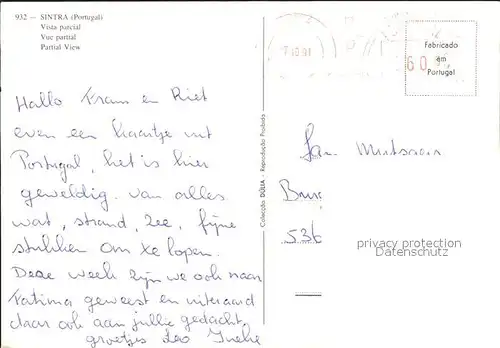 932 — SINTRA (Portugal)
Vista parcial
Vue partial
Partial View
Hallo Fram en Riet
even een kaartje uit
Portugal, het is hier
geweldig. van alles
wat, strand, zee, fijne
stukken om te lopen.
Deze week zijn we ook naar
Fatima geweest en uiteraard
daar ook aan jullie gedacht,
groetjes Leo Ineke
Colecção DÚLIA - Reprodução Proibida
Fabricado
em
Portugal
60
Fam.
536
privacy protection
Datenschutz